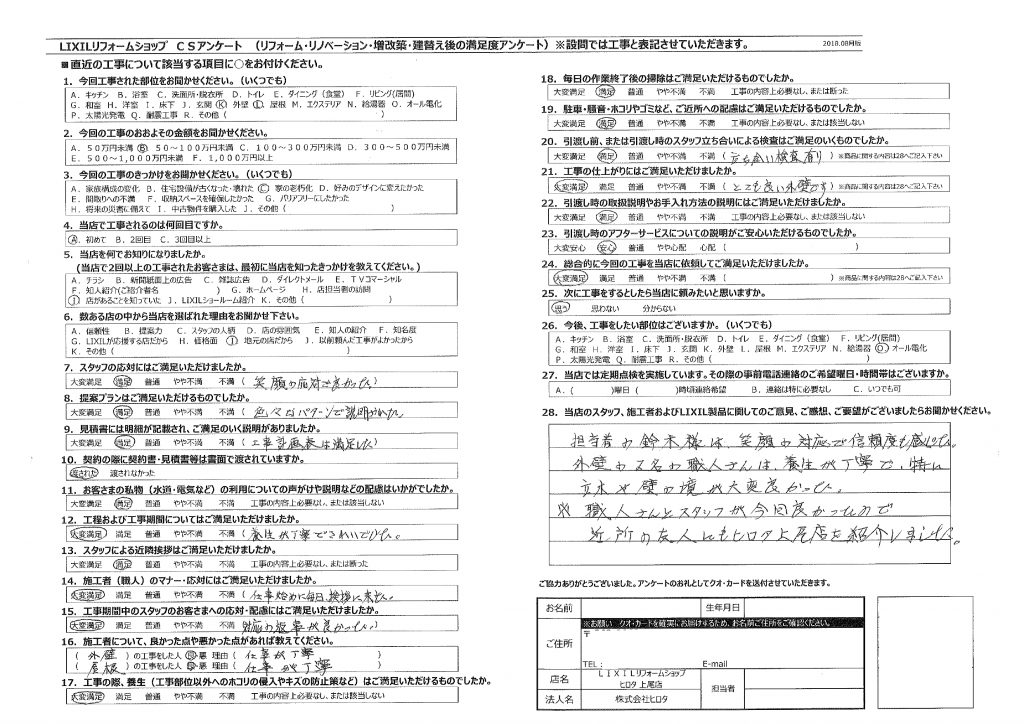 LIXILリフォームショップ CSアンケート （リフォーム・リノベーション・増改築・建替え後の満足度アンケート）※設問では工事と表記させていただきます。
2018.08月版
■直近の工事について該当する項目に○をお付けください。
1．今回工事された部位をお聞かせください。（いくつでも）
A．キッチン B．浴室 C．洗面所・脱衣所 D．トイレ E．ダイニング（食堂） F．リビング(居間)
G．和室 H．洋室 I．床下 J．玄関 K 外壁 L．屋根 M．エクステリア N．給湯器 O．オール電化
P．太陽光発電 Q．耐震工事 R．その他（ ）
2．今回の工事のおおよその金額をお聞かせください。
A．50万円未満 B 50～100万円未満 C．100～300万円未満 D．300～500万円未満
E．500～1,000万円未満 F．1,000万円以上
3．今回の工事のきっかけをお聞かせください。（いくつでも）
A．家族構成の変化 B．住宅設備が古くなった・壊れた C 家の老朽化 D．好みのデザインに変えたかった
E．間取りへの不満 F．収納スペースを確保したかった G．バリアフリーにしたかった
H．将来の災害に備えて I．中古物件を購入した J．その他（ ）
4．当店で工事されるのは何回目ですか。
A．初めて B．2回目 C．3回目以上
5．当店を何でお知りになりましたか。
(当店で2回以上の工事されたお客さまは、最初に当店を知ったきっかけを教えてください。)
A．チラシ B．新聞紙面上の広告 C．雑誌広告 D．ダイレクトメール E．TVコマーシャル
F．知人紹介(ご紹介者名 ） G．ホームページ H．店担当者の訪問
I 店があることを知っていた J．LIXILショールーム紹介 K．その他（ ）
6．数ある店の中から当店を選ばれた理由をお聞かせ下さい。
A．信頼性 B．提案力 C．スタッフの人柄 D．店の雰囲気 E．知人の紹介 F．知名度
G．LIXILが応援する店だから H．価格面 I 地元の店だから J．以前頼んだ工事がよかったから
K．その他（ ）
7．スタッフの応対はご満足いただけましたか。
大変満足 満足 普通 やや不満 不満（笑顔の応対で良かった）
8．提案プランはご満足いただけるものでしたか。
大変満足 満足 普通 やや不満 不満（色々なパターンで説明 ）
9．見積書には明細が記載され、ご満足のいく説明がありましたか。
大変満足 満足 普通 やや不満 不満（工事計画表は満足した）
10．契約の際に契約書・見積書等は書面で渡されていますか。
渡された 渡されなかった
11．お客さまの私物（水道・電気など）の利用についての声がけや説明などの配慮はいかがでしたか。
大変満足 満足 普通 やや不満 不満 工事の内容上必要なし、または該当しない
12．工程および工事期間についてはご満足いただけましたか。
大変満足 満足 普通 やや不満 不満（養生が丁寧できれいでした。）
13．スタッフによる近隣挨拶はご満足いただけましたか。
大変満足 満足 普通 やや不満 不満 工事の内容上必要なし、または断った
14．施工者（職人）のマナー・応対にはご満足いただけましたか。
大変満足 満足 普通 やや不満 不満（仕事始めに毎日、挨拶に来た。）
15．工事期間中のスタッフのお客さまへの応対・配慮にはご満足いただけましたか。
大変満足 満足 普通 やや不満 不満（対応の返事が良かった。）
16．施工者について、良かった点や悪かった点があれば教えてください。
（外壁）の工事をした人 良・悪 理由（仕事が丁寧）
（屋根）の工事をした人 良・悪 理由（仕事が丁寧）
17．工事の際、養生（工事部位以外へのホコリの侵入やキズの防止策など）はご満足いただけるものでしたか。
大変満足 満足 普通 やや不満 不満 工事の内容上必要なし、または該当しない
18．毎日の作業終了後の掃除はご満足いただけるものでしたか。
大変満足 満足 普通 やや不満 不満 工事の内容上必要なし、または断った
19．駐車・騒音・ホコリやゴミなど、ご近所への配慮はご満足いただけるものでしたか。
大変満足 満足 普通 やや不満 不満 工事の内容上必要なし、または該当しない
20．引渡し前、または引渡し時のスタッフ立ち合いによる検査はご満足のいくものでしたか。
大変満足 満足 普通 やや不満 不満（立ち合い検査有り）※商品に関する内容は28へご記入下さい
21．工事の仕上がりにはご満足いただけましたか。
大変満足 満足 普通 やや不満 不満（とても良い外壁です）※商品に関する内容は28へご記入下さい
22．引渡し時の取扱説明やお手入れ方法の説明にはご満足いただけましたか。
大変満足 満足 普通 やや不満 不満 工事の内容上必要なし、または該当しない
23．引渡し時のアフターサービスについての説明がご安心いただけるものでしたか。
大変安心 安心 普通 やや心配 心配（ ）
24．総合的に今回の工事を当店に依頼してご満足いただけましたか。
大変満足 満足 普通 やや不満 不満（ ）※商品に関する内容は28へご記入下さい
25．次に工事をするとしたら当店に頼みたいと思いますか。
思う 思わない 分からない
26．今後、工事をしたい部位はございますか。（いくつでも）
A．キッチン B．浴室 C．洗面所・脱衣所 D．トイレ E．ダイニング（食堂） F．リビング(居間)
G．和室 H．洋室 I．床下 J．玄関 K．外壁 L．屋根 M．エクステリア N．給湯器 O オール電化
P．太陽光発電 Q．耐震工事 R．その他（ ）
27．当店では定期点検を実施しています。その際の事前電話連絡のご希望曜日・時間帯はございますか。
A．（ )曜日（ )時頃連絡希望 B．連絡は特に必要なし C．いつでも可
28．当店のスタッフ、施工者およびLIXIL製品に関してのご意見、ご感想、ご要望がございましたらお聞かせください。
担当者の鈴木様は、笑顔の対応で信頼度も感じた。
外壁の2名の職人さんは、養生が丁寧で、特に
立水や壁の境が大変良かった。
※ 職人さんとスタッフが今回良かったので
近所の友人にもヒロタ上尾店を紹介しました。
ご協力ありがとうございました。アンケートのお礼としてクオ・カードを送付させていただきます。
お名前 生年月日
※お願い クオ・カードを確実にお届けするため、お名前ご住所をご確認ください。
ご住所 〒
TEL： E-mail
店名 LIXILリフォームショップ ヒロタ 上尾店 担当者
法人名 株式会社ヒロタ